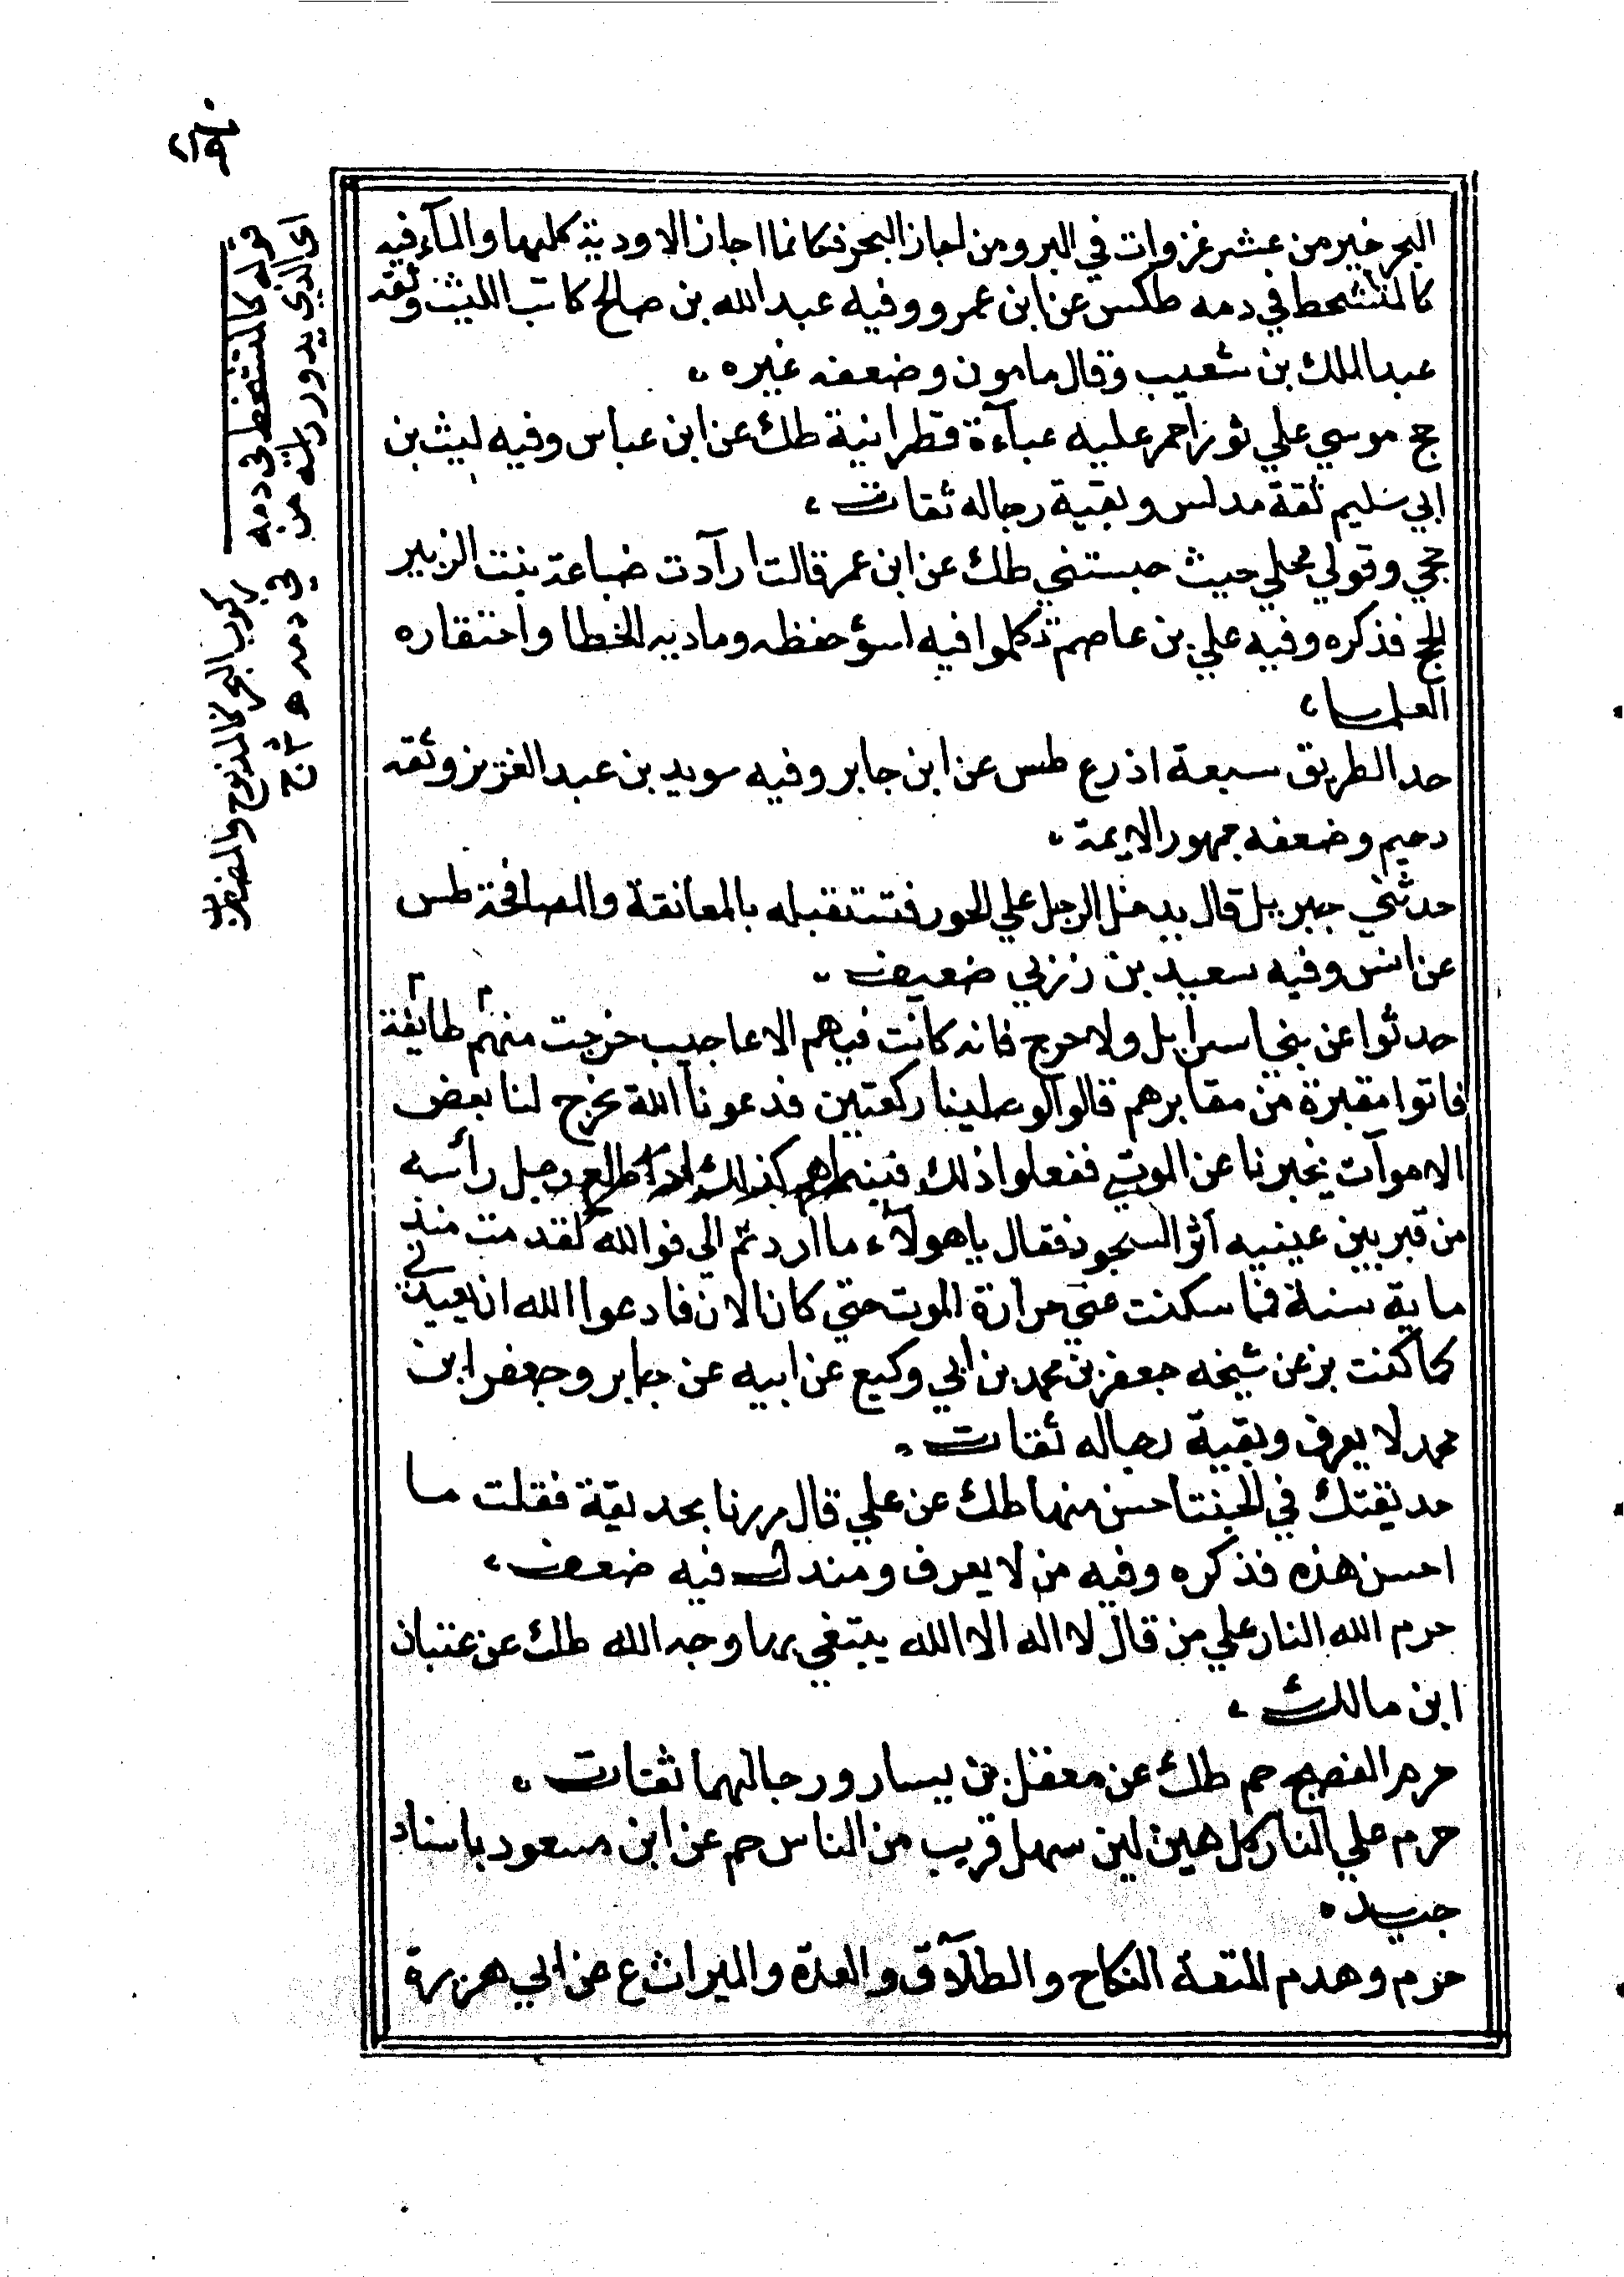 البحر خير من عشر غزوات في البر ومن اجاز البحر فكانما اجاز الاودية كلها والمآء فيه
كالمتشحط في دمه طكس عن ابن عمرو وفيه عبد الله بن صالح كاتب الليث وثقه
عبد الملك بن شعيب وقال مامون وضعفه غيره
حج موسي علي ثور احمر عليه عبآءة قطرانية طك عن ابن عباس وفيه ليث بن
ابي سليم ثقة مدلس وبقية رجاله ثقات
حجي وقولي محلي حيث حبستني طك عن ابن عمر قالت ارآدت ضباعة بنت الزبير
الحج فذكره وفيه علي بن عاصم تكلموا فيه اسؤ حفظه وماديه الخطا واحتقاره
العلما
حد الطريق سبعة اذرع طس عن ابن جابر وفيه سويد بن عبد العزيز وثقه
دحيم وضعفه جمهور الايمة
حدثني جبريل قال يدخل الرجل علي الحور فتستقبله بالمعانقة والمصافحة طس
عن انس وفيه سعيد بن زربي ضعيف
حدثوا عن بني اسرايل ولا حرج فانه كانت فيهم الاعاجيب خرجت منهم طايفة
فاتوا مقبرة من مقابرهم قالوا لو صلينا ركعتين فدعونا الله يخرج لنا بعض
الاموآت يخبرنا عن الموت ففعلوا ذلك فبينما هم كذلك اذ اطلع رجل رأسه
من قبر بين عينيه اثر السجود فقال ياهولآء ما اردتم الي فوالله لقد مت منذ
ماية سنة فما سكنت عني حرارة الموت حتي كان الان فادعوا الله ان يعيدني
كما كنت بز عن شيخه جعفر بن محمد بن ابي وكيع عن ابيه عن جابر وجعفر ابن
محمد لا يعرف وبقية رجاله ثقات
حديقتك في الجنة احسن منها طك عن علي قال مررنا بحديقة فقلت ما
احسن هذه فذكره وفيه من لا يعرف ومندل فيه ضعف
حرم الله النار علي من قال لا اله الا الله يبتغي بها وجه الله طك عن عتبان
ابن مالك
حرم الفضيح حم طك عن معقل بن يسار ورجالهما ثقات
حرم علي النار كل هين لين سهل قريب من الناس حم عن ابن مسعود باسناد
جيد
حرم وهدم المتعة النكاح والطلآق والعدة والميراث ع عن ابي هريرة
قوله كالمتشحط في دمه
اي الذي يدور رايته من
ركوب البحر كالمذبوح والمضطرب
في دمه